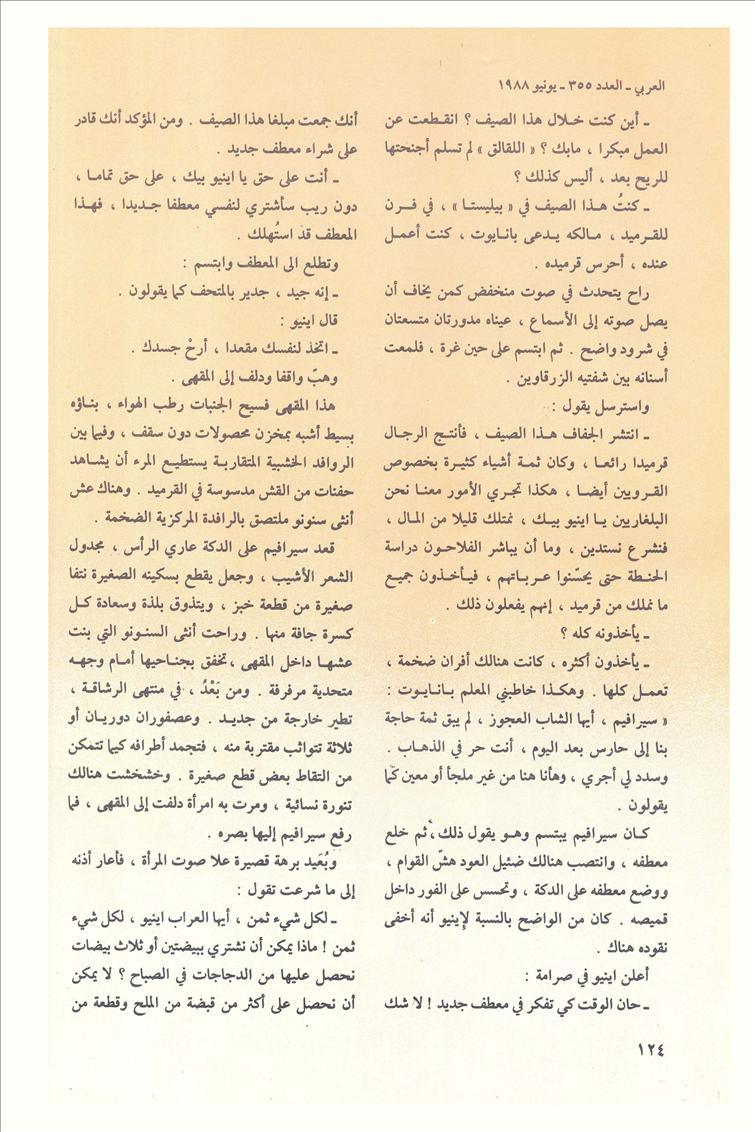 العربي ـ العدد ٣٥٥ ـ يونيو ١٩٨٨
ـ أين كنت خلال هذا الصيف ؟ انقطعت عن
العمل مبكرا ، مابك ؟ « اللقالق » لم تسلم أجنحتها
للريح بعد ، أليس كذلك ؟
ـ كنتُ هذا الصيف في « بيليستا » ، في فرن
للقرميد ، مالكه يدعى بانايوت ، كنت أعمل
عنده ، أحرس قرميده .
راح يتحدث في صوت منخفض كمن يخاف أن
يصل صوته إلى الأسماع ، عيناه مدورتان متسعتان
في شرود واضح . ثم ابتسم على حين غرة ، فلمعت
أسنانه بين شفتيه الزرقاوين .
واسترسل يقول :
ـ انتشر الجفاف هذا الصيف ، فأنتج الرجال
قرميدا رائعا ، وكان ثمة أشياء كثيرة بخصوص
القرويين أيضا ، هكذا تجري الأمور معنا نحن
البلغاريين يا اينيو بيك ، نمتلك قليلا من المال ،
فنشرع نستدين ، وما أن يباشر الفلاحون دراسة
الحنطة حتى يحسّنوا عرباتهم ، فيأخذون جميع
ما نملك من قرميد ، إنهم يفعلون ذلك .
ـ يأخذونه كله ؟
ـ يأخذون أكثره ، كانت هنالك أفران ضخمة ،
تعمل كلها . وهكذا خاطبني المعلم بانايوت :
« سيرافيم ، أيها الشاب العجوز ، لم يبق ثمة حاجة
بنا إلى حارس بعد اليوم ، أنت حر في الذهاب .
وسدد لي أجري ، وهأنا هنا من غير ملجأ أو معين كما
يقولون .
كان سيرافيم يبتسم وهو يقول ذلك ، ثم خلع
معطفه ، وانتصب هنالك ضئيل العود هشّ القوام ،
ووضع معطفه على الدكة ، وتحسس على الفور داخل
قميصه . كان من الواضح بالنسبة لإينيو أنه أخفى
نقوده هناك .
أعلن اينيو في صرامة :
ـ حان الوقت كي تفكر في معطف جديد ! لا شك
أنك جمعت مبلغا هذا الصيف . ومن المؤكد أنك قادر
على شراء معطف جديد .
ـ أنت على حق يا اينيو بيك ، على حق تماما ،
دون ريب سأشتري لنفسي معطفا جديدا ، فهذا
المعطف قد استُهلك .
وتطلع الى المعطف وابتسم :
ـ إنه جيد ، جدير بالمتحف كما يقولون .
قال اينيو :
ـ اتخذ لنفسك مقعدا ، أرحْ جسدك .
وهبّ واقفا ودلف إلى المقهى .
هذا المقهى فسيح الجنبات رطب الهواء ، بناؤه
بسيط أشبه بمخزن محصولات دون سقف ، وفيما بين
الروافد الخشبية المتقاربة يستطيع المرء أن يشاهد
حفنات من القش مدسوسة في القرميد . وهناك عش
أنثى سنونو ملتصق بالرافدة المركزية الضخمة .
قعد سيرافيم على الدكة عاري الرأس ، مجدول
الشعر الأشيب ، وجعل يقطع بسكينه الصغيرة نتفا
صغيرة من قطعة خبز ، ويتذوق بلذة وسعادة كل
كسرة جافة منها . وراحت أنثى السنونو التي بنت
عشها داخل المقهى ، تخفق بجناحيها أمام وجهه
متحدية مرفرفة . ومن بَعْدُ ، في منتهى الرشاقة ،
تطير خارجة من جديد . وعصفوران دوريان أو
ثلاثة تتواثب مقتربة منه ، فتجمد أطرافه كيما تتمكن
من التقاط بعض قطع صغيرة . وخشخشت هنالك
تنورة نسائية ، ومرت به امرأة دلفت إلى المقهى ، فما
رفع سيرافيم إليها بصره .
وبُعَيد برهة قصيرة علا صوت المرأة ، فأعار أذنه
إلى ما شرعت تقول :
ـ لكل شيء ثمن ، أيها العراب اينيو ، لكل شيء
ثمن ! ماذا يمكن أن نشتري ببيضتين أو ثلاث بيضات
نحصل عليها من الدجاجات في الصباح ؟ لا يمكن
أن نحصل على أكثر من قبضة من الملح وقطعة من
١٢٤